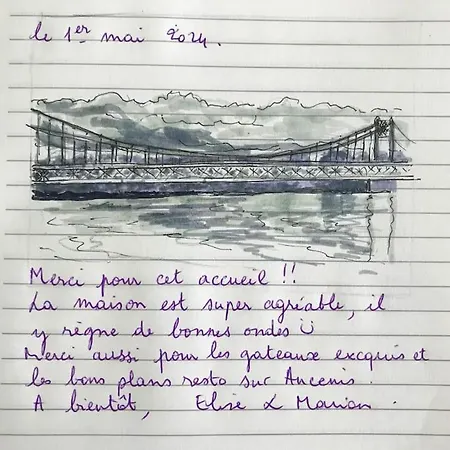 le 1er mai 2024.
Merci pour cet accueil !!
La maison est super agréable, il
y règne de bonnes ondes ☺
Merci aussi pour les gateaux excquis et
les bons plans resto sur Ancenis.
A bientôt, Elise & Marion.